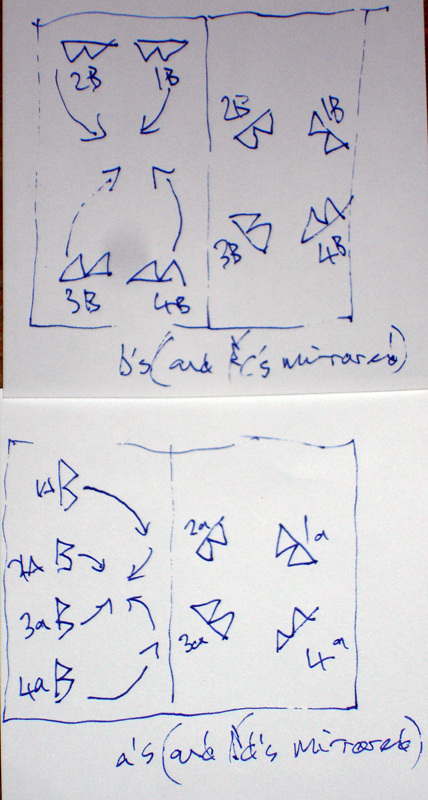 2B 1B
2B 1B
3B 4B
3B 4B
b's (and c's mirrored)
1a
2a
3a
4a
2a 1a
3a 4a
a's (and d's mirrored)